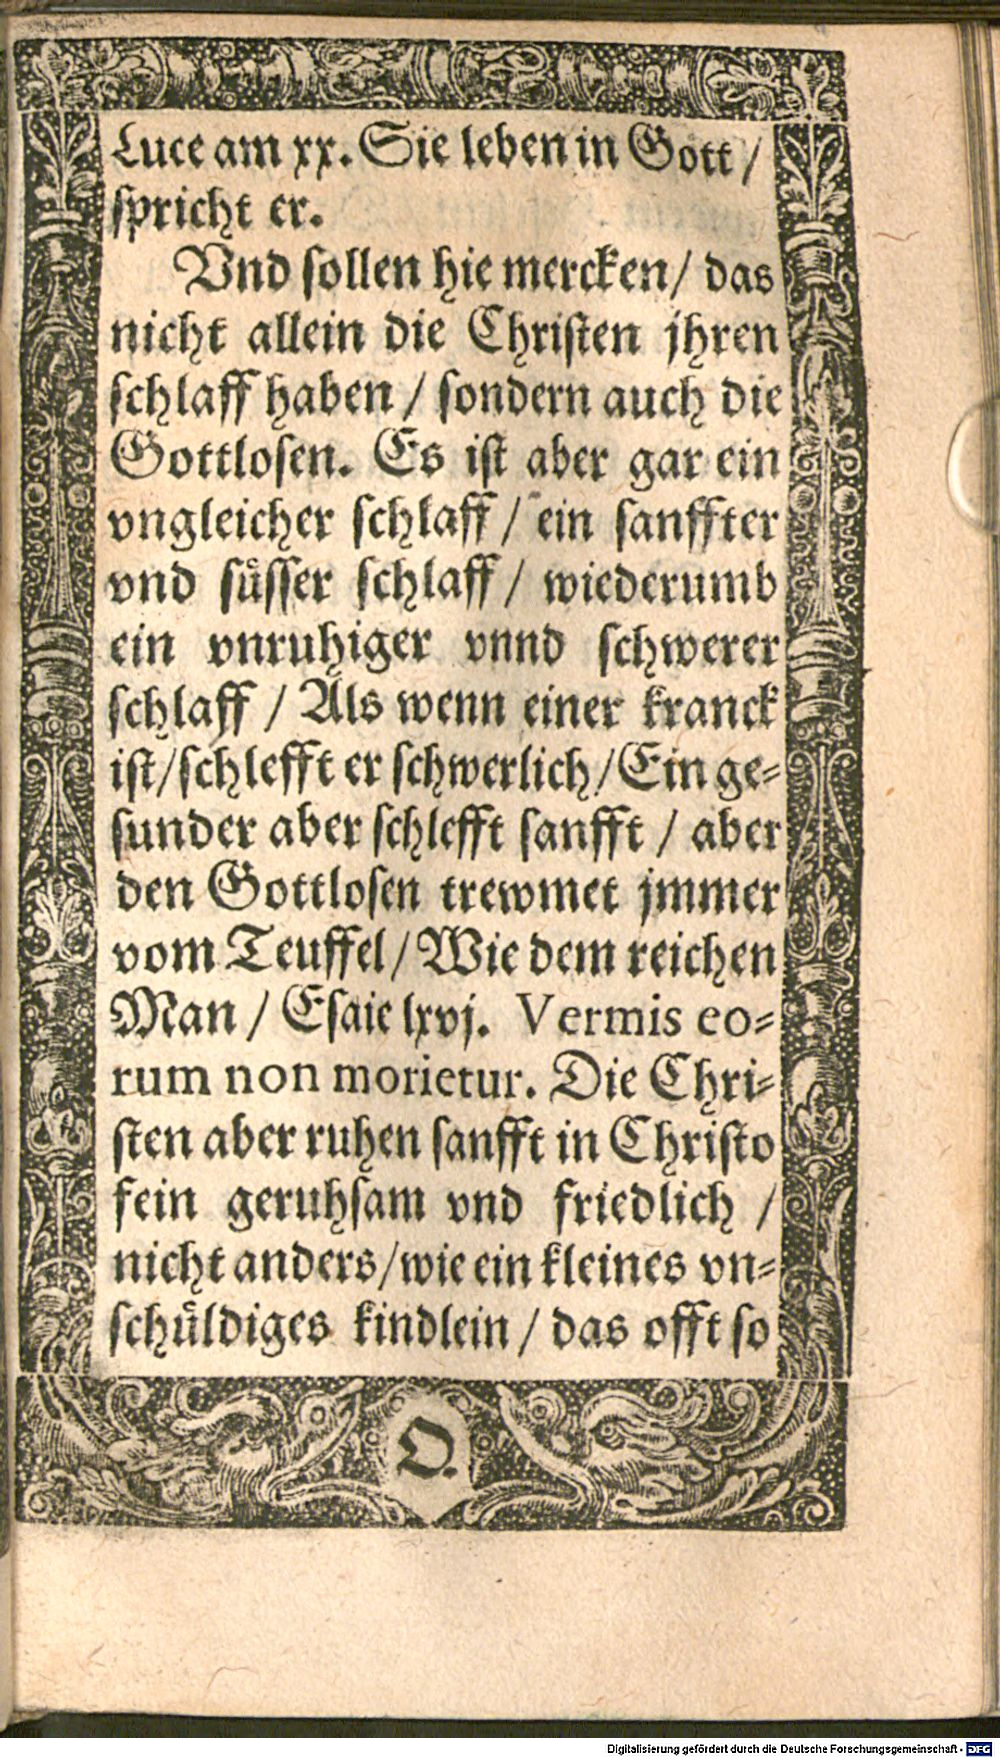 Luce am xx. Sie leben in Gott /
spricht er.
Vnd sollen hie mercken / das
nicht allein die Christen jhren
schlaff haben / sondern auch die
Gottlosen. Es ist aber gar ein
vngleicher schlaff / ein sanffter
vnd suͤsser schlaff / wiederumb
ein vnruhiger vnnd schwerer
schlaff / Als wenn einer kranck
ist / schlefft er schwerlich / Ein ge⸗
sunder aber schlefft sanfft / aber
den Gottlosen trewmet jmmer
vom Teuffel / Wie dem reichen
Man / Esaie lxvj. Vermis eo⸗
rum non morietur. Die Chri⸗
sten aber ruhen sanfft in Christo
fein geruhsam vnd friedlich /
nicht anders / wie ein kleines vn⸗
schuͤldiges kindlein / das offt so
O.
Digitalisierung gefördert durch die Deutsche Forschungsgemeinschaft - DFG